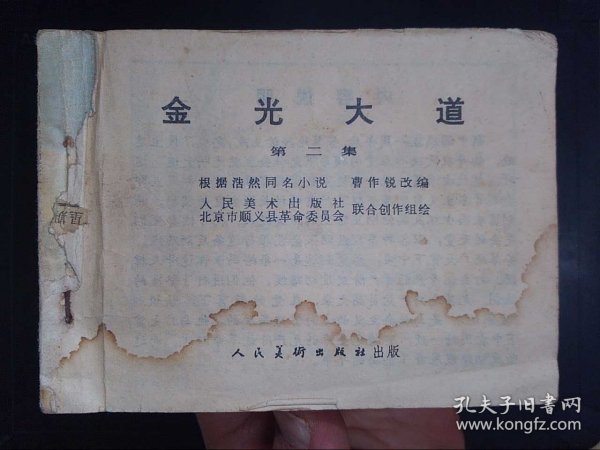 金光大道
第二集
根据浩然同名小说 曹作锐改编
人民美术出版社
北京市顺义县革命委员会
联合创作组绘
人民美術出版社出版
孔夫子旧书网
www.kongfz.com